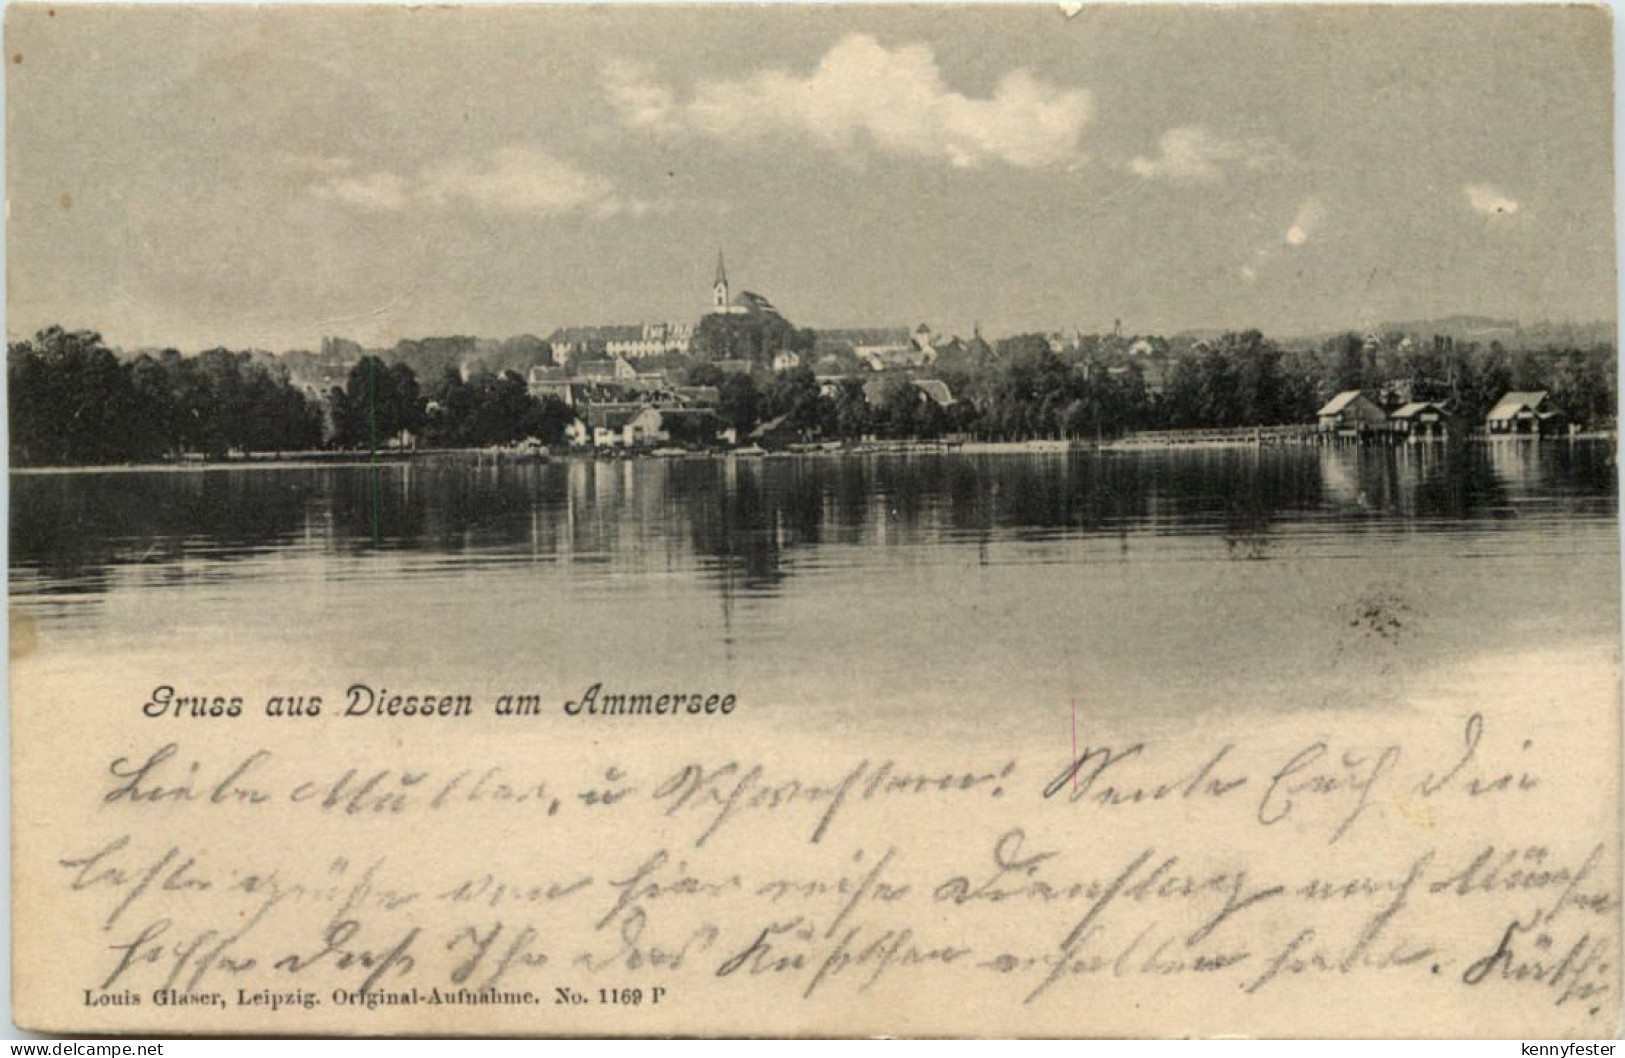 Gruss aus Diessen am Ammersee
Liebe Mutter, u Schwestern! Sente Euch die
beste grüße von hier reise Dienstag nach München
hoffe das Ihr das Kistchen erhalten habt. Käthi.
Louis Glaser, Leipzig. Original-Aufnahme. No. 1169 P
www.delcampe.net
kennyfester